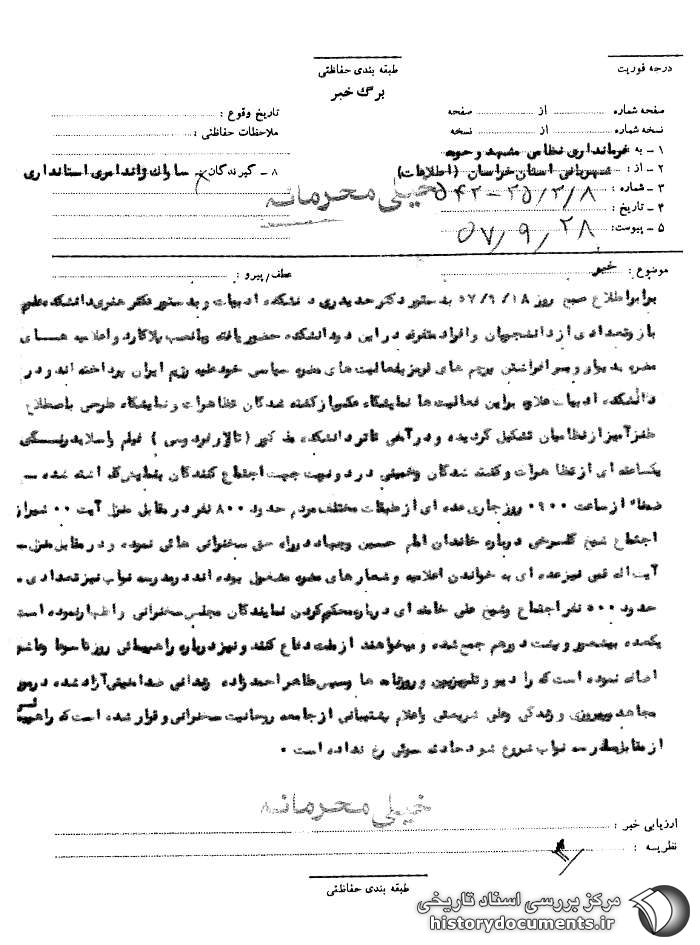 طبقه بندی حفاظتی
درجه فوریت
برگ خبر
صفحه شماره از صفحه
تاریخ وقوع :
نسخه شماره از نسخه
ملاحظات حفاظتی :
۱ ـ به فرمانداری نظامی مشهد و حومه
۲ ـ از : شهربانی استان خراسان (اطلاعات)
۸ ـ گیرندگان ساواك ژاندامری استانداری
۳ ـ شماره : ۵۴۲ – ۲۵/۳/۸
خیلی محرمانه
۴ ـ تاریخ :
۵ ـ پیوست: ۵۷/۹/۲۸
موضوع : خبر
عطف/پیرو :
برابر اطلاع صبح روز ۵۷/۹/۱۸ به دستور دکتر حدیدری دانشکده ادبیات و به دستور دکتر دانشکده علوم
باز و تعدادی از دانشجویان و افراد متفرقه در این دو دانشکده حضور یافته و با نصب پلاکارد و اعلامیه هـــای
مضره به دیوار و بر افراشتن پرچم های قرمز بفعالیت های مضره سیاسی خود علیه رژیم ایران پرداخته اند و در
دانشکده ادبیات علاوه براین فعالیت ها نمایشگاه عکس از کشته شدگان تظاهرات و نمایشگاه طرحی باصطلاح
طنزآمیز از نظامیان تشکیل گردیده و در آمفی تاتر دانشکده مذکور (تالار فردوسی ) فیلم و اسلاید رنـــگی
یکساعته ای از تظاهرات و کشته شدگان و خمینی در دو نوبت جهت اجتماع کنندگان بنمایش گذاشته شده ــ
ضمناً از ساعت ۰۹۰۰ روز جاری عده ای از طبقات مختلف مردم حدود ۸۰۰ نفر در مقابل منزل آیت ۰۰ شیراز
اجتماع شیخ درباره خاندان امام حسین و جهاد در راه حق سخنرانی هائی نموده و در مقابل منزل ــ
آیت اله قمی نیز عده ای به خواندن اعلامیه و شعارهای مضره مشغول بوده اند در مدرسه نواب نیز تعدادی ـ
حدود ۵۰۰ نفر اجتماع و شیخ علی خامنه ای درباره محکوم کردن نمایندگان مجلس سخنرانی و اظهار نموده است
یکعده بیشعور و پست دورهم جمع شده و میخواهند از ملت دفاع کنند و نیز درباره راهپیمائی روز تاسوعا و عاشو
اضافه نموده است که رادیو و تلویزیون و روزنامه ها و سپس طاهر احمدزاده زندانی ضد امنیتی آزاد شده در مورد
مجاهد و پیروزی و زندگی و علی شریعتی و اعلام پشتیبانی از جامعه روحانیت سخنرانی و قرار شده است که راهپیما
ئی
از مقابل مدرسه نواب شروع شود حادثه سوئی رخ نداده است ۰
خیلی محرمانه
ارزیابی خبر :
نظریه :
طبقه بندی حفاظتی
مرکز بررسی اسناد تاریخی
historydocuments.ir